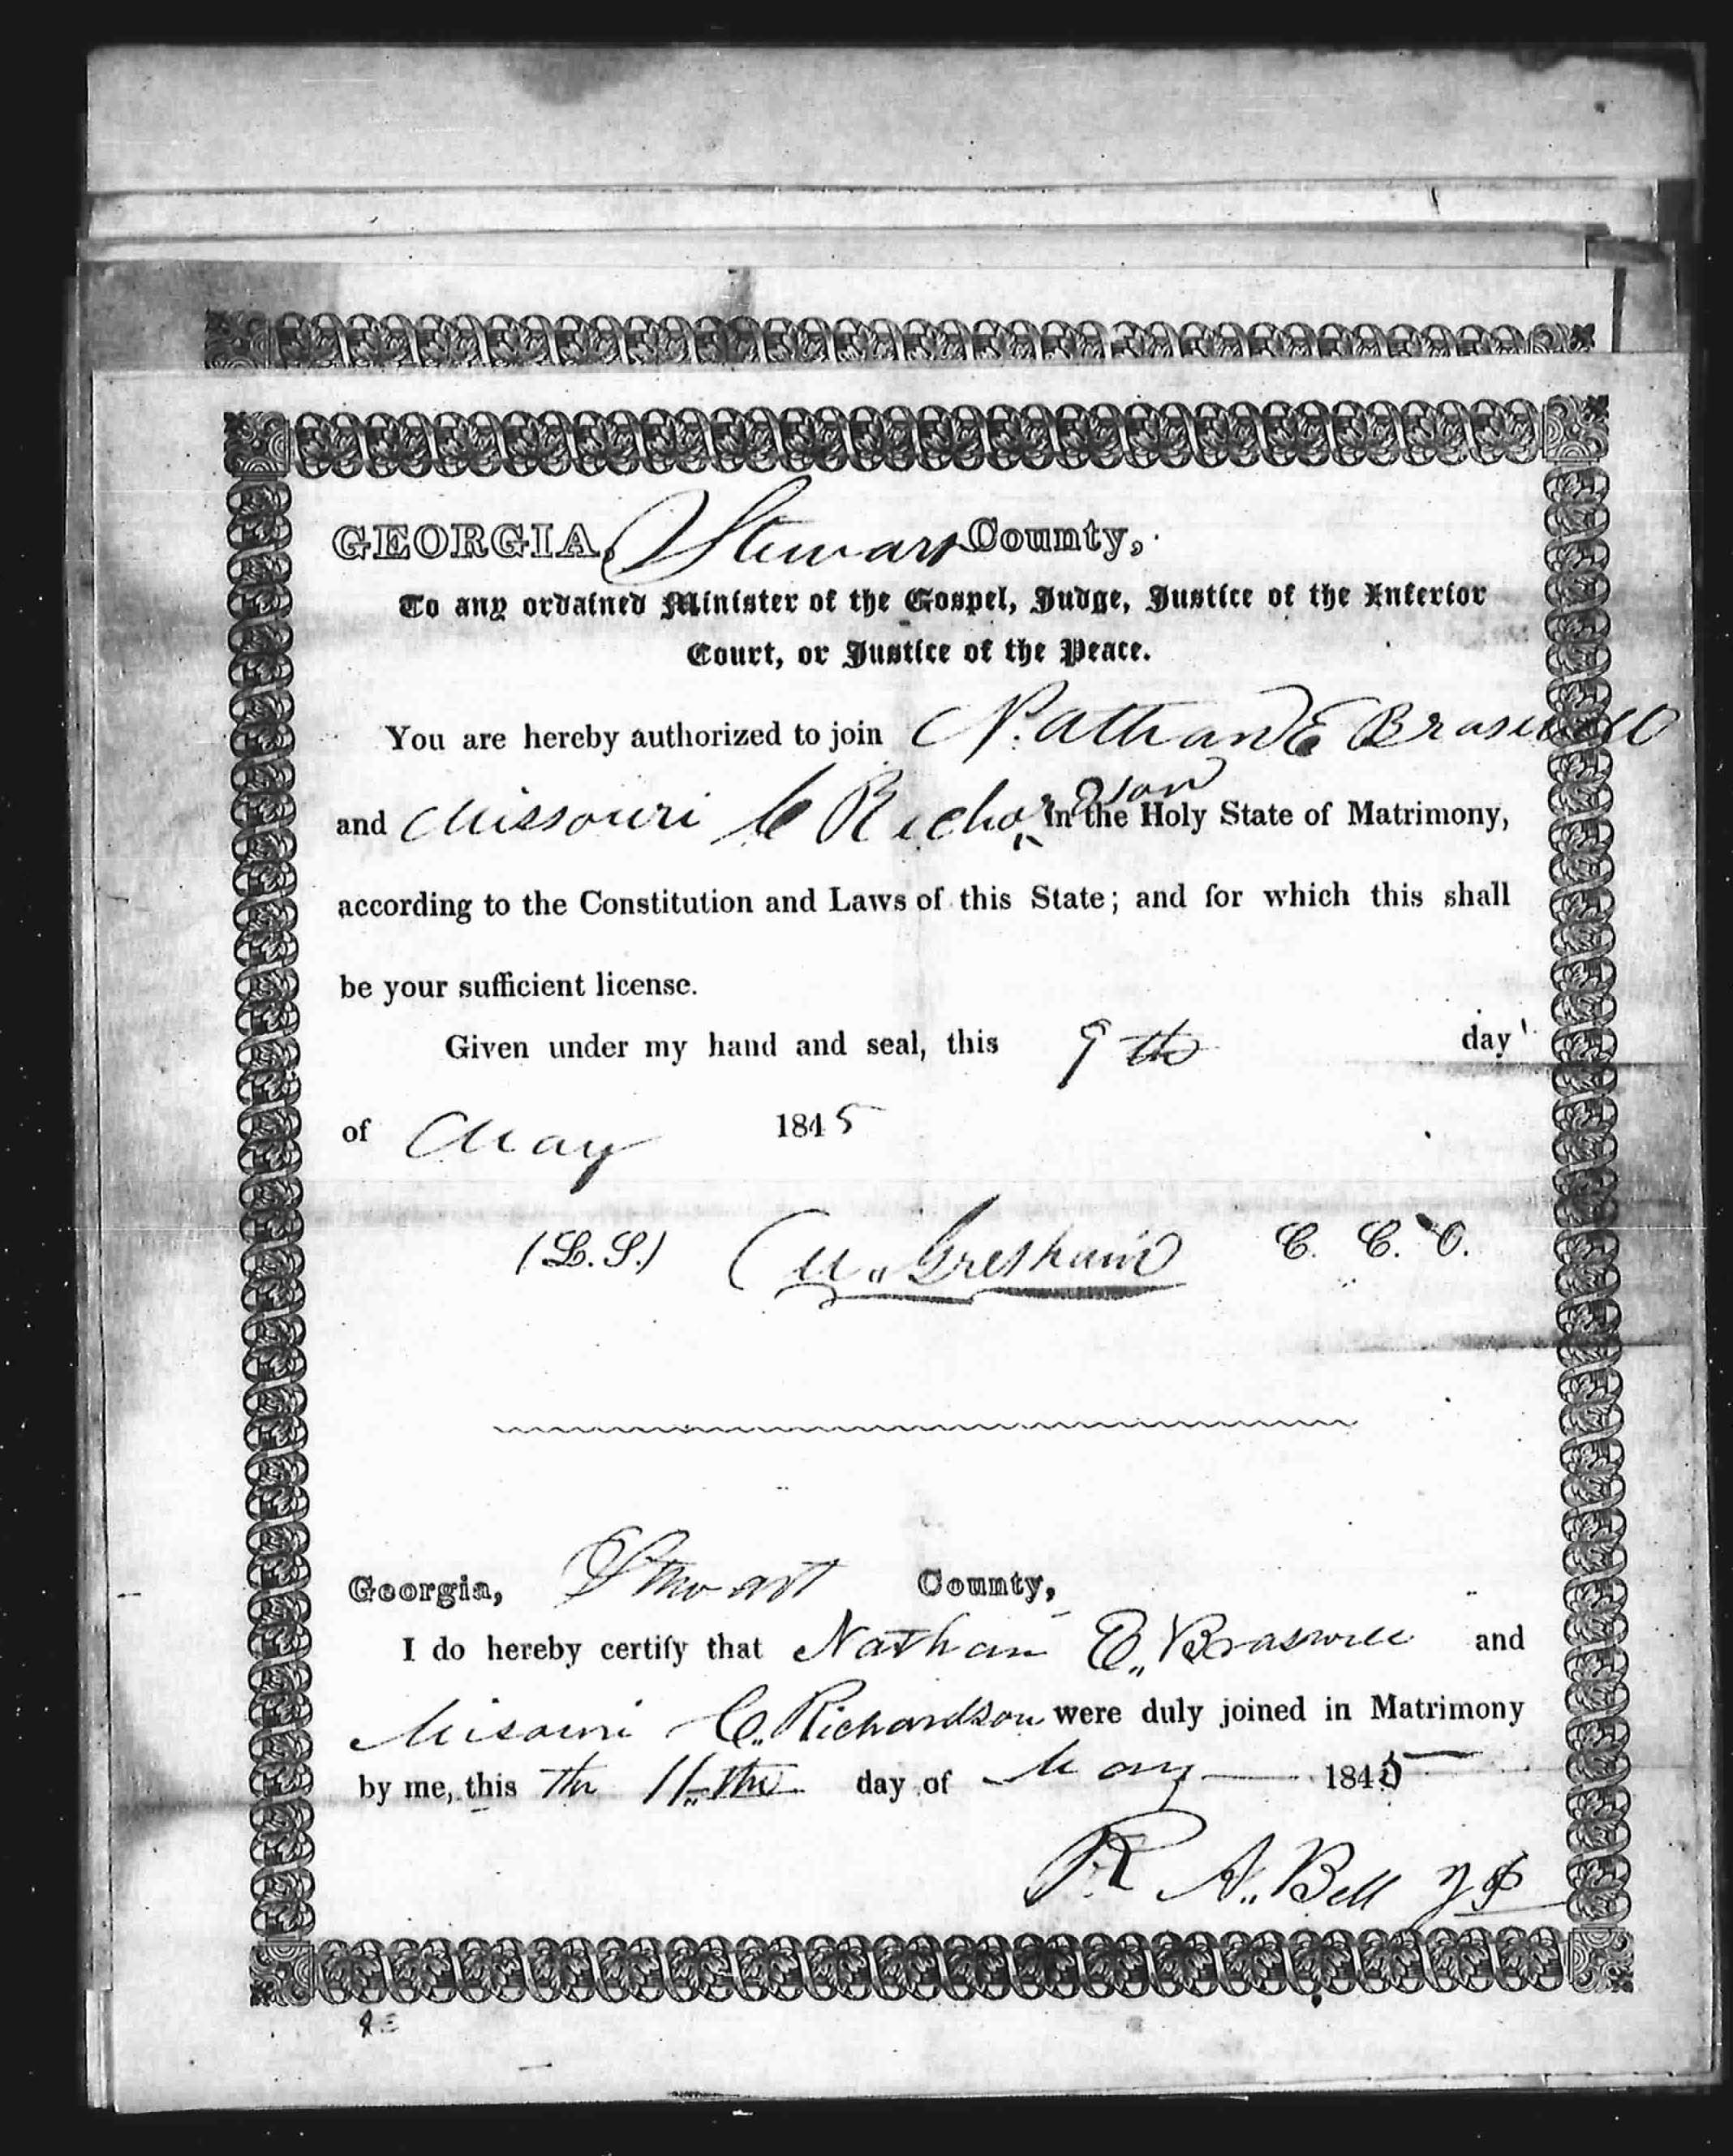 GEORGIA, Stewart County,
To any ordained Minister of the Gospel, Judge, Justice of the Inferior
Court, or Justice of the Peace.
You are hereby authorized to join Nathan E Braswell
and Missouri C Richardson in the Holy State of Matrimony,
according to the Constitution and Laws of this State; and for which this shall
be your sufficient license.
Given under my hand and seal, this 9th day
of May 1845
(L.S.) M. Gresham C. C. O.
Georgia, Stewart County,
I do hereby certify that Nathan E. Braswell and
Misouri C. Richardson were duly joined in Matrimony
by me, this the 11th day of May 1845
R A. Bell JP